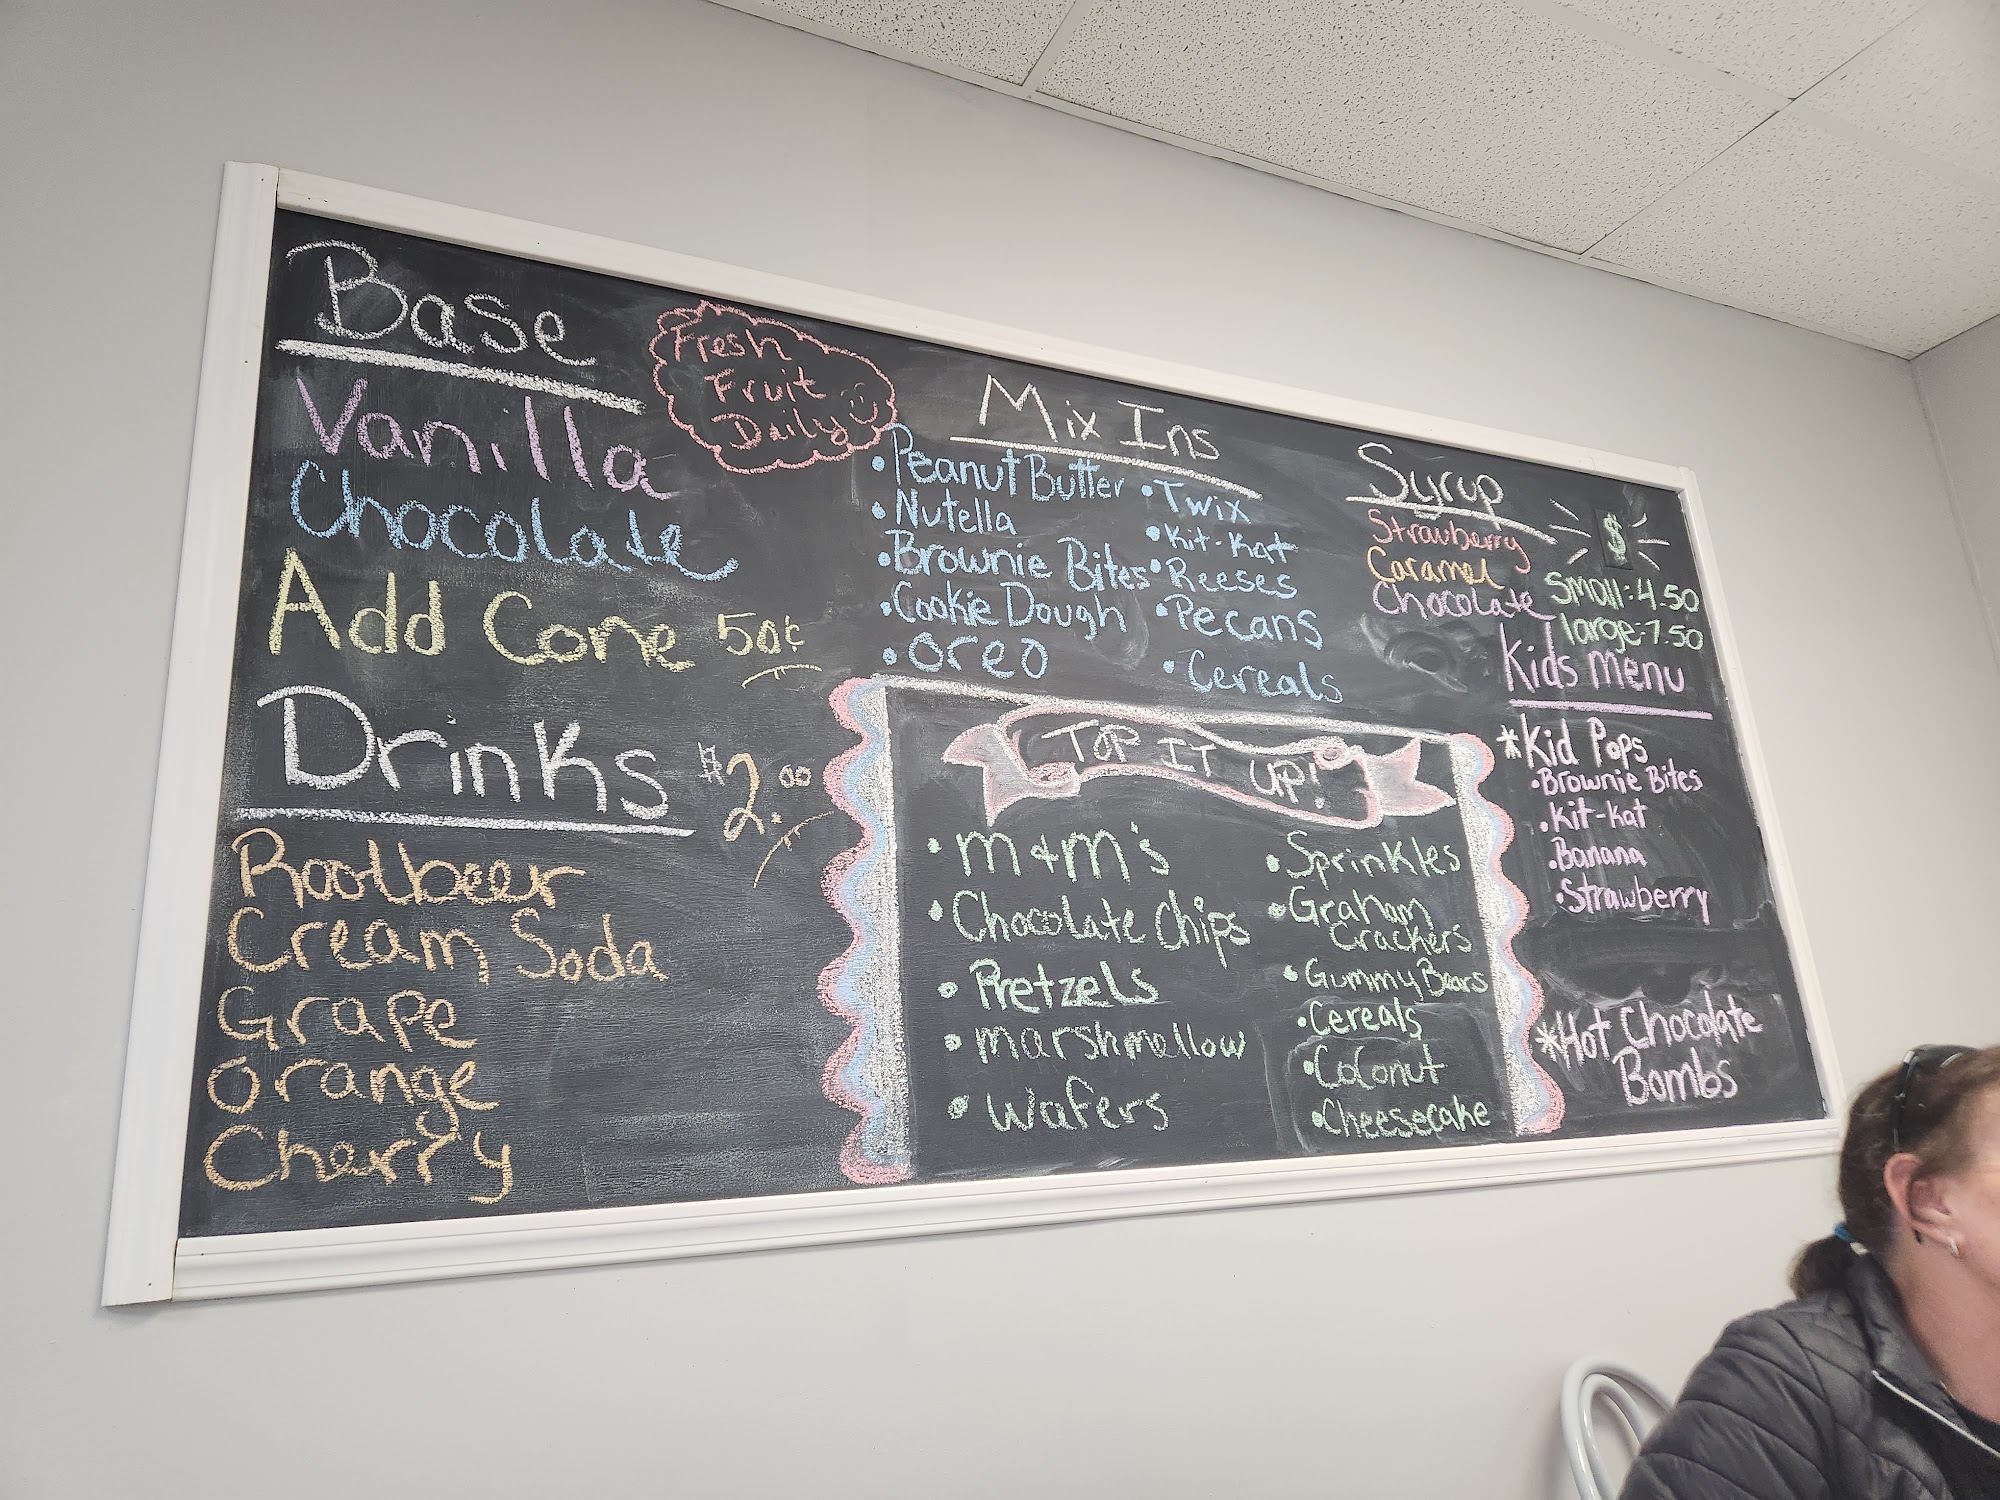 Base
Vanilla
Chocolate
Add Cone 50¢
Fresh
Fruit
Daily
Drinks $2.00
Rootbeer
Cream Soda
Grape
Orange
Cherry
Mix Ins
• Peanut Butter
• Nutella
• Brownie Bites
• Cookie Dough
• Oreo
• Twix
• Kit-Kat
• Reeses
• Pecans
• Cereals
Syrup
Strawberry
Caramel
Chocolate
$
Small: 4.50
large: 7.50
TOP IT UP!
• m&m's
• Chocolate Chips
• Pretzels
• marshmallow
• Wafers
• Sprinkles
• Graham
Crackers
• Gummy Bears
• Cereals
• Coconut
• Cheesecake
Kids Menu
*Kid Pops
• Brownie Bites
• Kit-Kat
• Banana
• Strawberry
*Hot Chocolate
Bombs